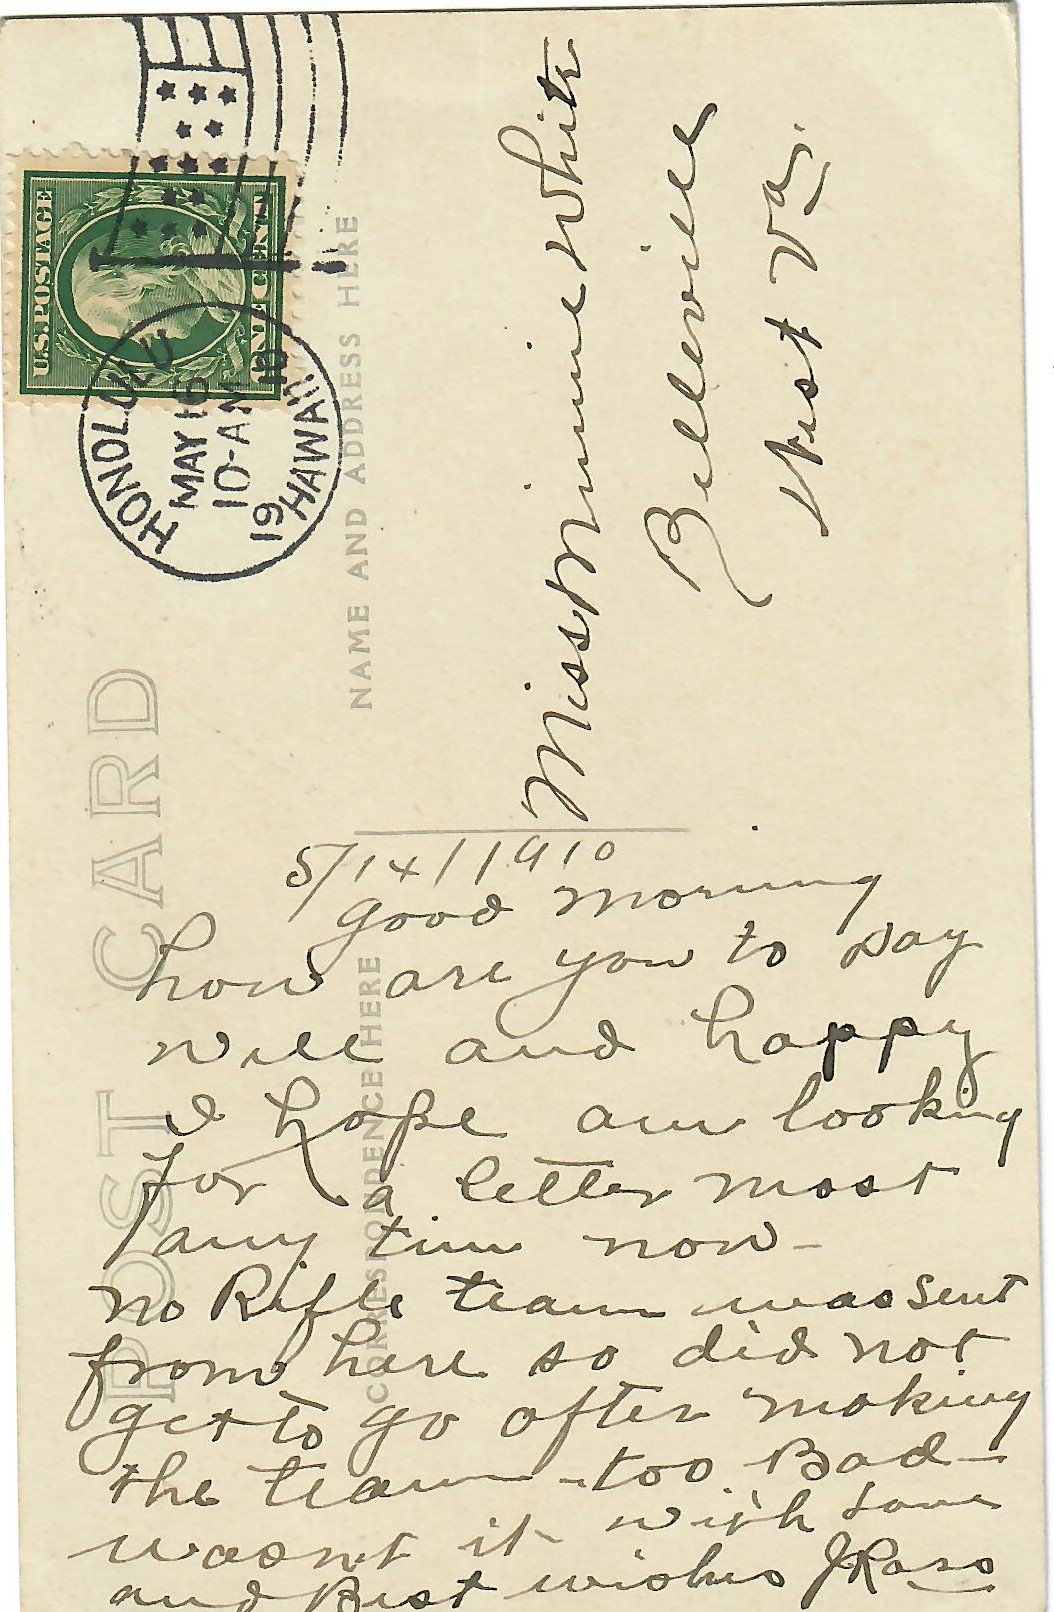 POST CARD
U.S. POSTAGE
ONE CENT
HONOLULU
MAY 16
10-AM
1910
HAWAII
NAME AND ADDRESS HERE
Miss Minnie White
Belleville
West Va.
CORRESPONDENCE HERE
5/14/1910
Good morning
how are you to day
well and happy
I hope am looking
for a letter most
any time now-
no Rifle team was sent
from here so did not
get to go after making
the team - too Bad-
wasn't it with Love
and Best wishes J Ross